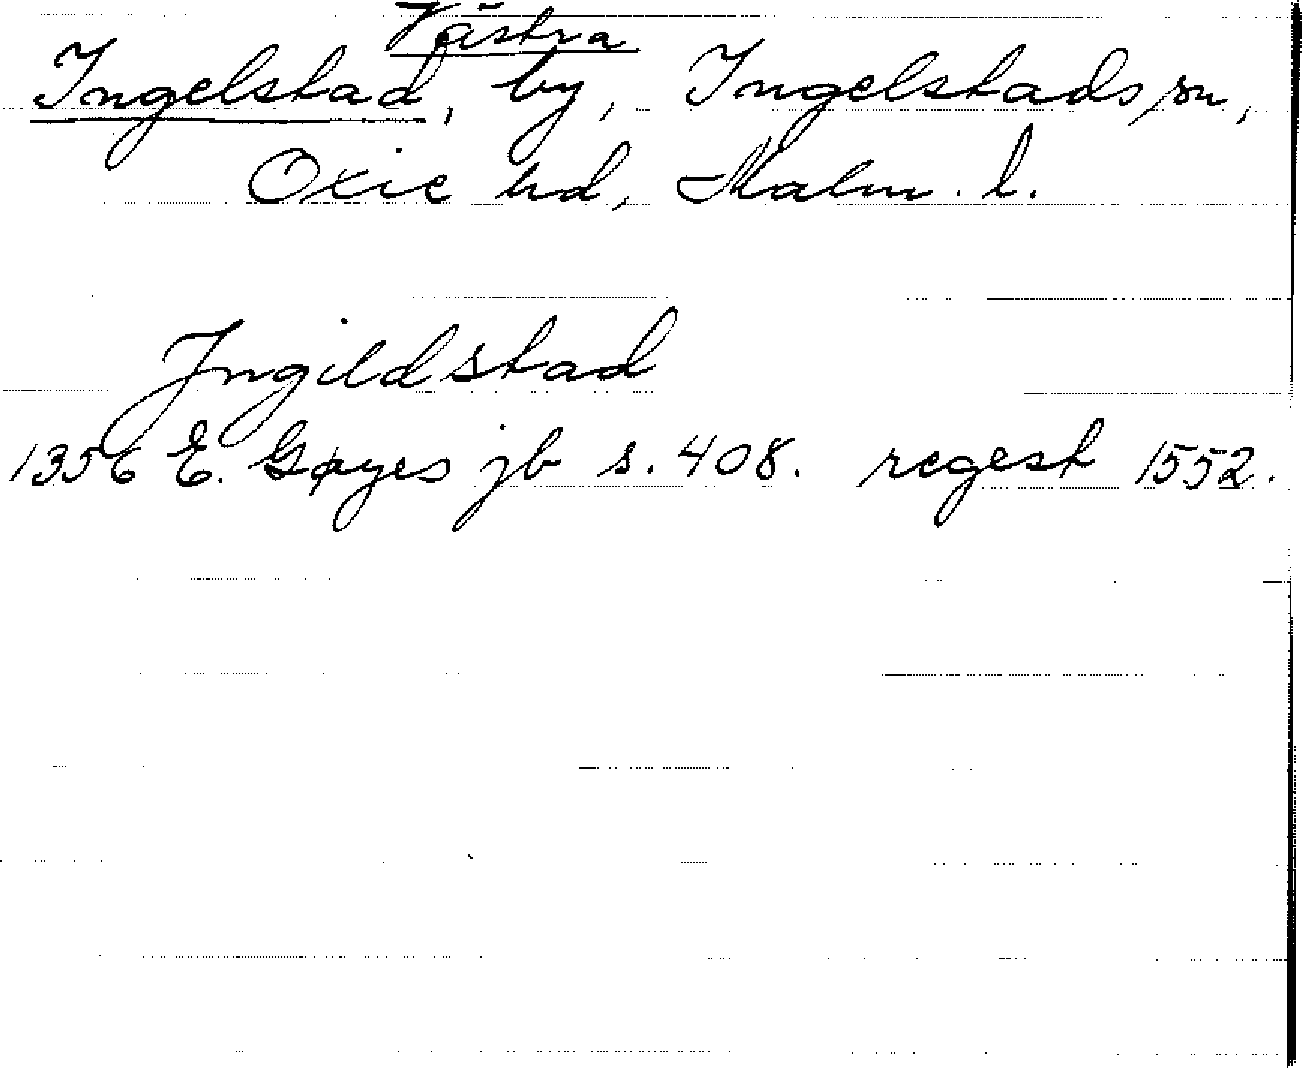 Västra
Ingelstad, by, Ingelstads sn,
Oxie hd, Malm. l.
Jngildstad
1356 E. Gøyes jb s. 408. regest 1552.